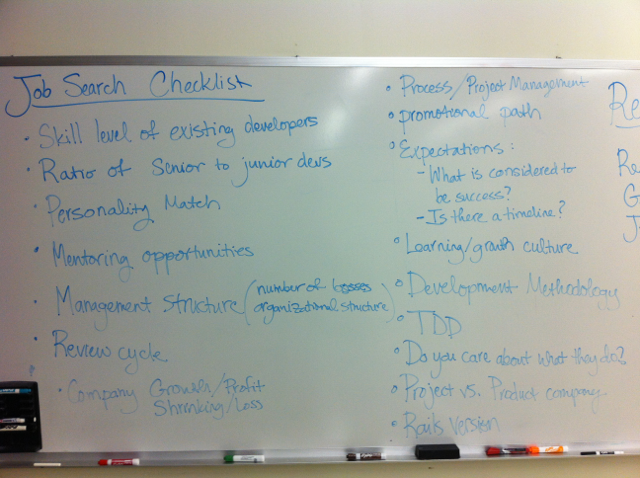 Job Search Checklist
• Skill level of existing developers
• Ratio of Senior to junior devs
• Personality Match
• Mentoring opportunities
• Management Structure (number of bosses
organizational structure)
• Review cycle
• Company Growth/Profit
Shrinking/Loss
• Process/Project Management
• promotional path
• Expectations:
- What is considered to
be success?
- Is there a timeline?
• Learning/growth culture
• Development Methodology
• TDD
• Do you care about what they do?
• Project vs. Product company
• Rails version